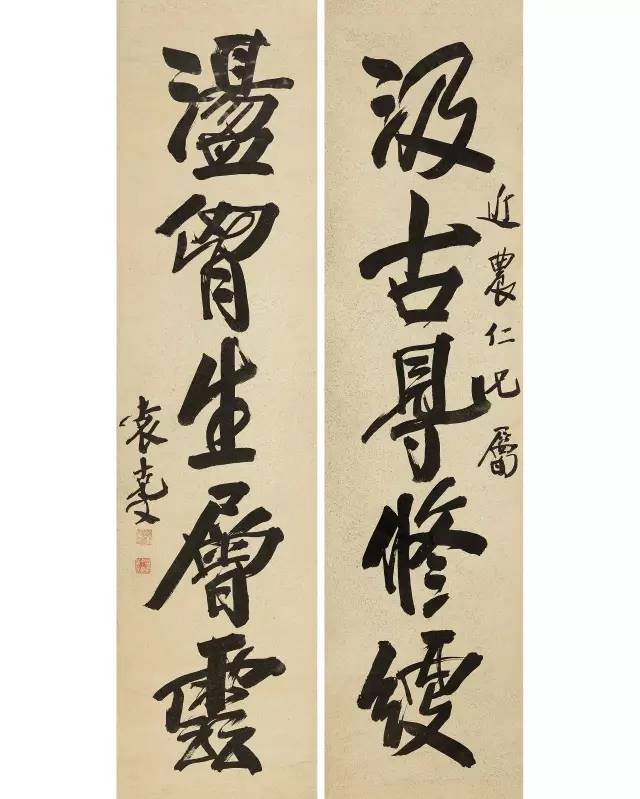 汲古㝵修綆
近農仁兄屬
盪胷生層雲
袁克文